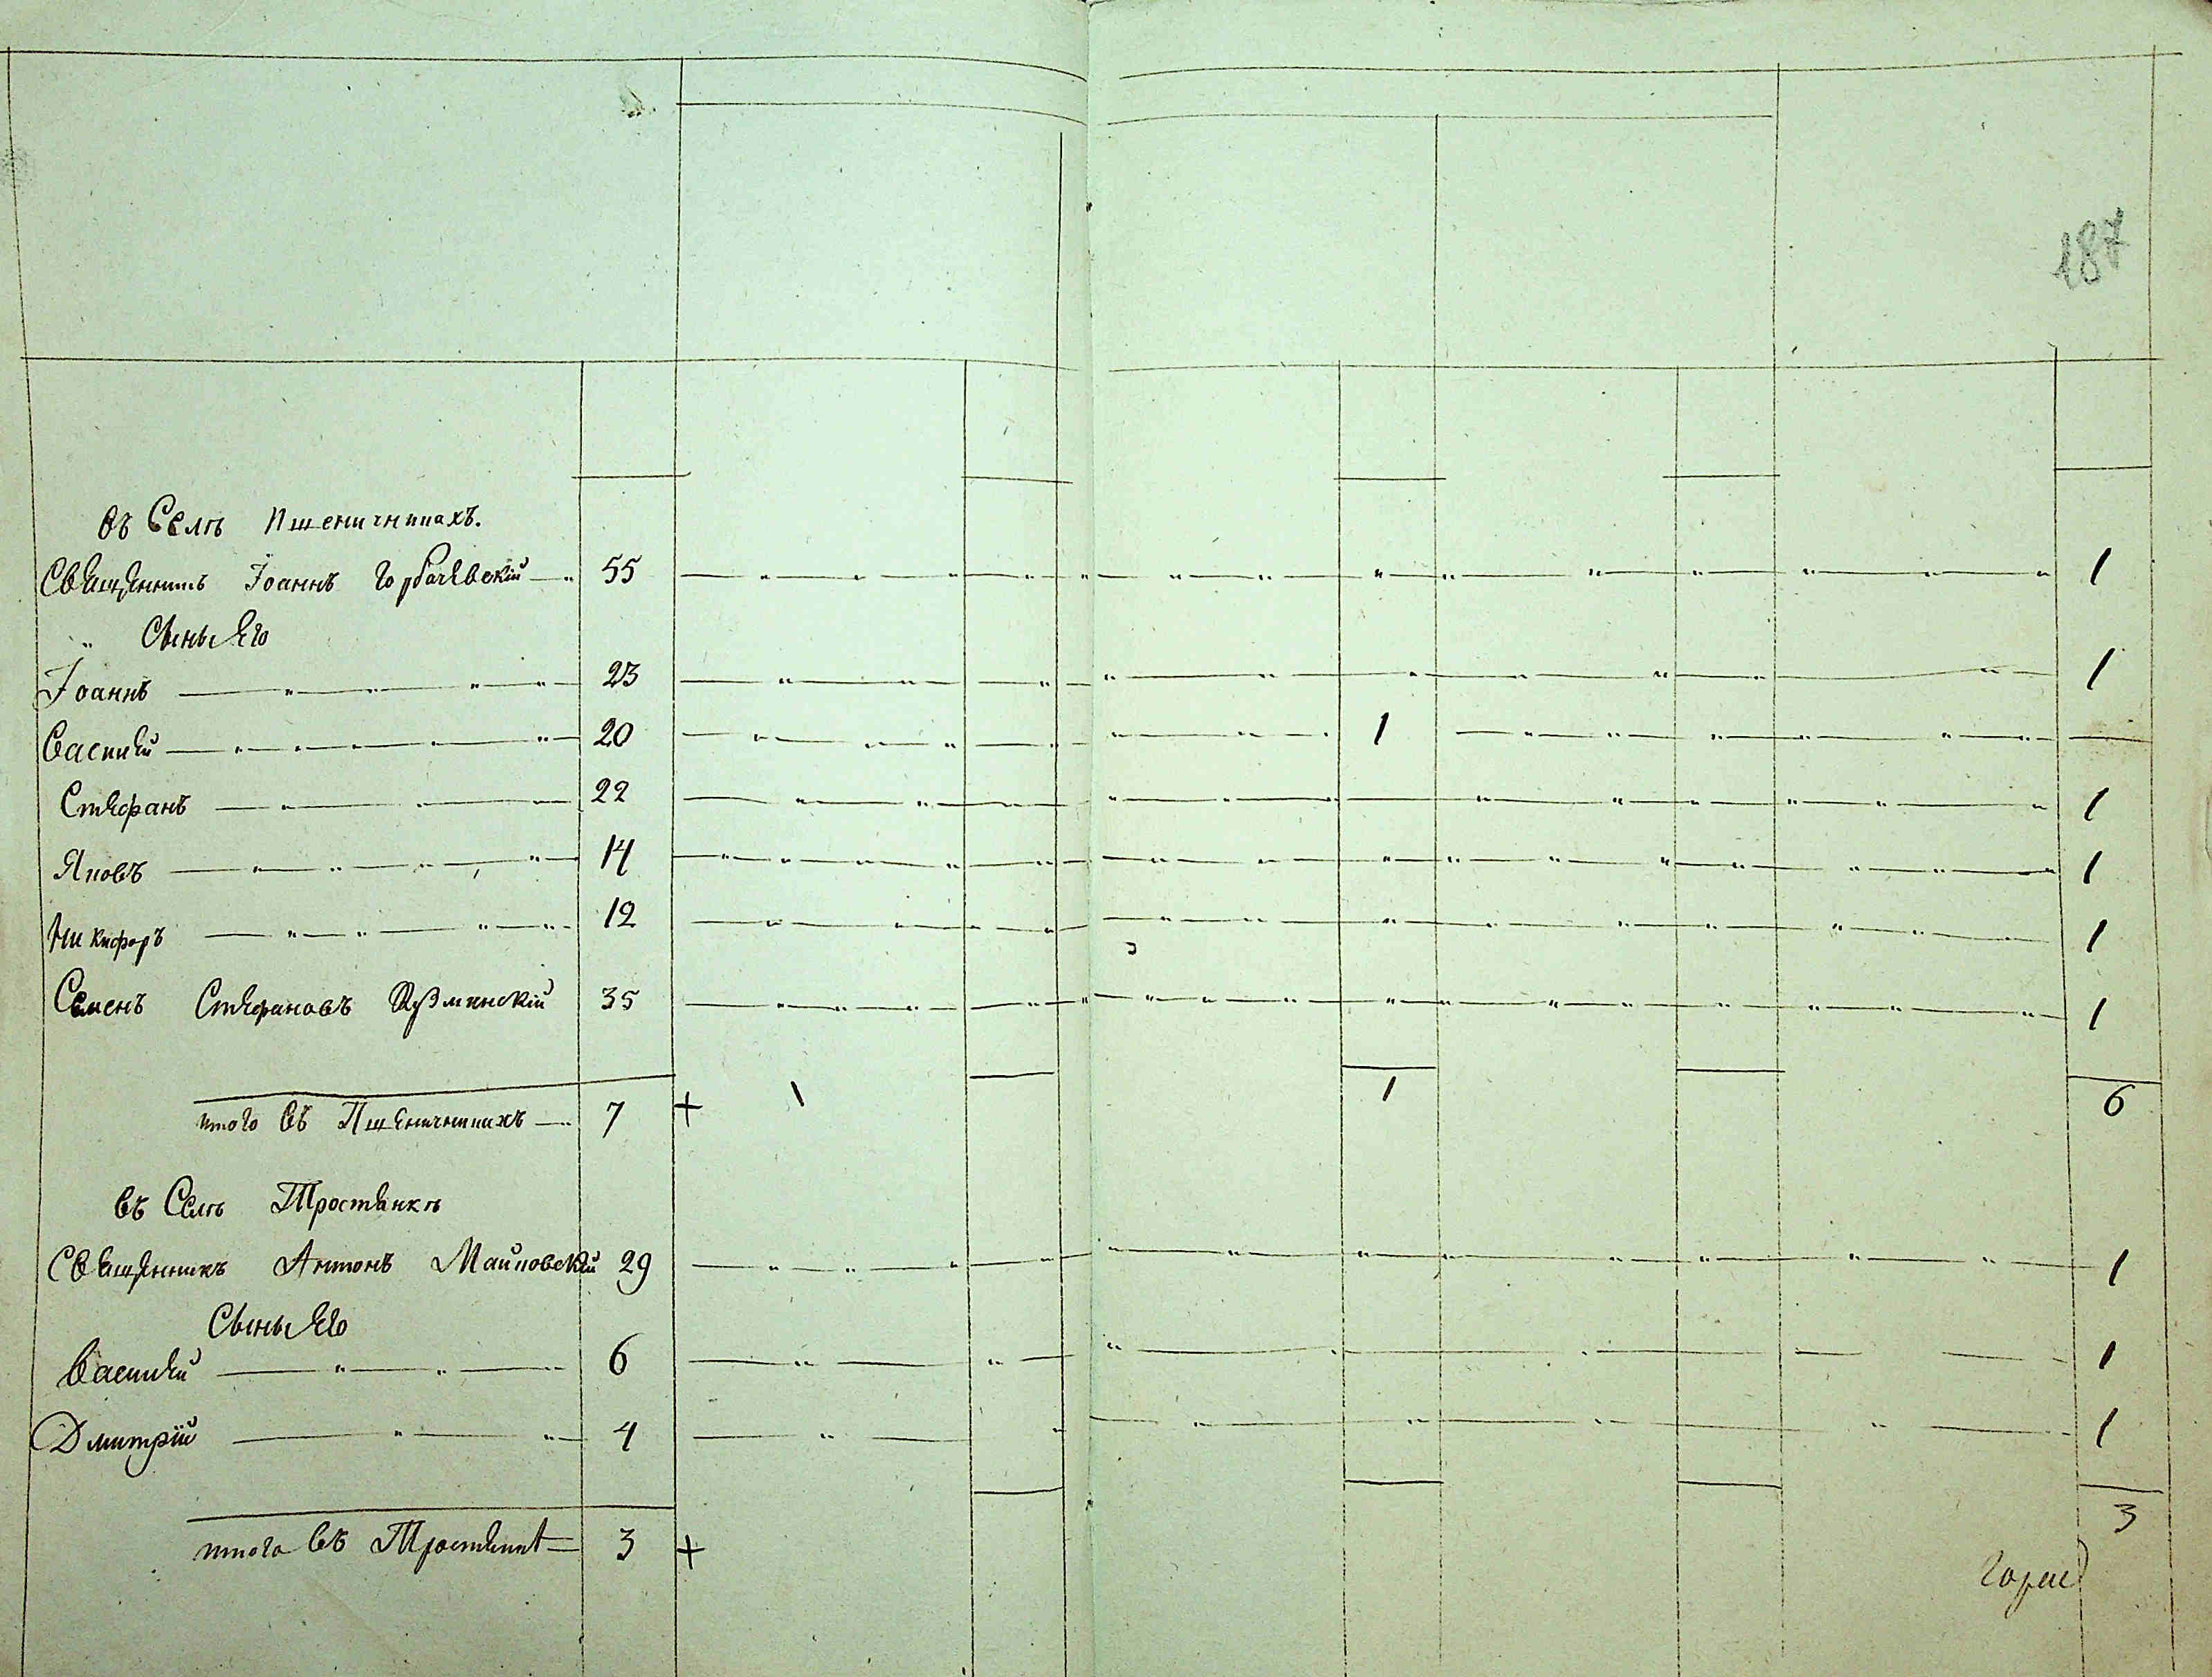 187
въ Селѣ Пшеничникахъ.
Священникъ Іоаннъ Горбачевскій 55 1
Сыны Его
Іоаннъ 23 1
Василій 20 1
Стефанъ 22 1
Яковъ 14 1
Никифоръ 12 1
Семенъ Стефановъ Кузминскій 35 1
итого въ Пшеничникахъ 7 + 1 1 6
въ Селѣ Тростянкѣ
Священникъ Антонъ Майковскій 29 1
Сыны Его
Василій 6 1
Дмитрій 4 1
итого въ Тростянкѣ 3 + 3